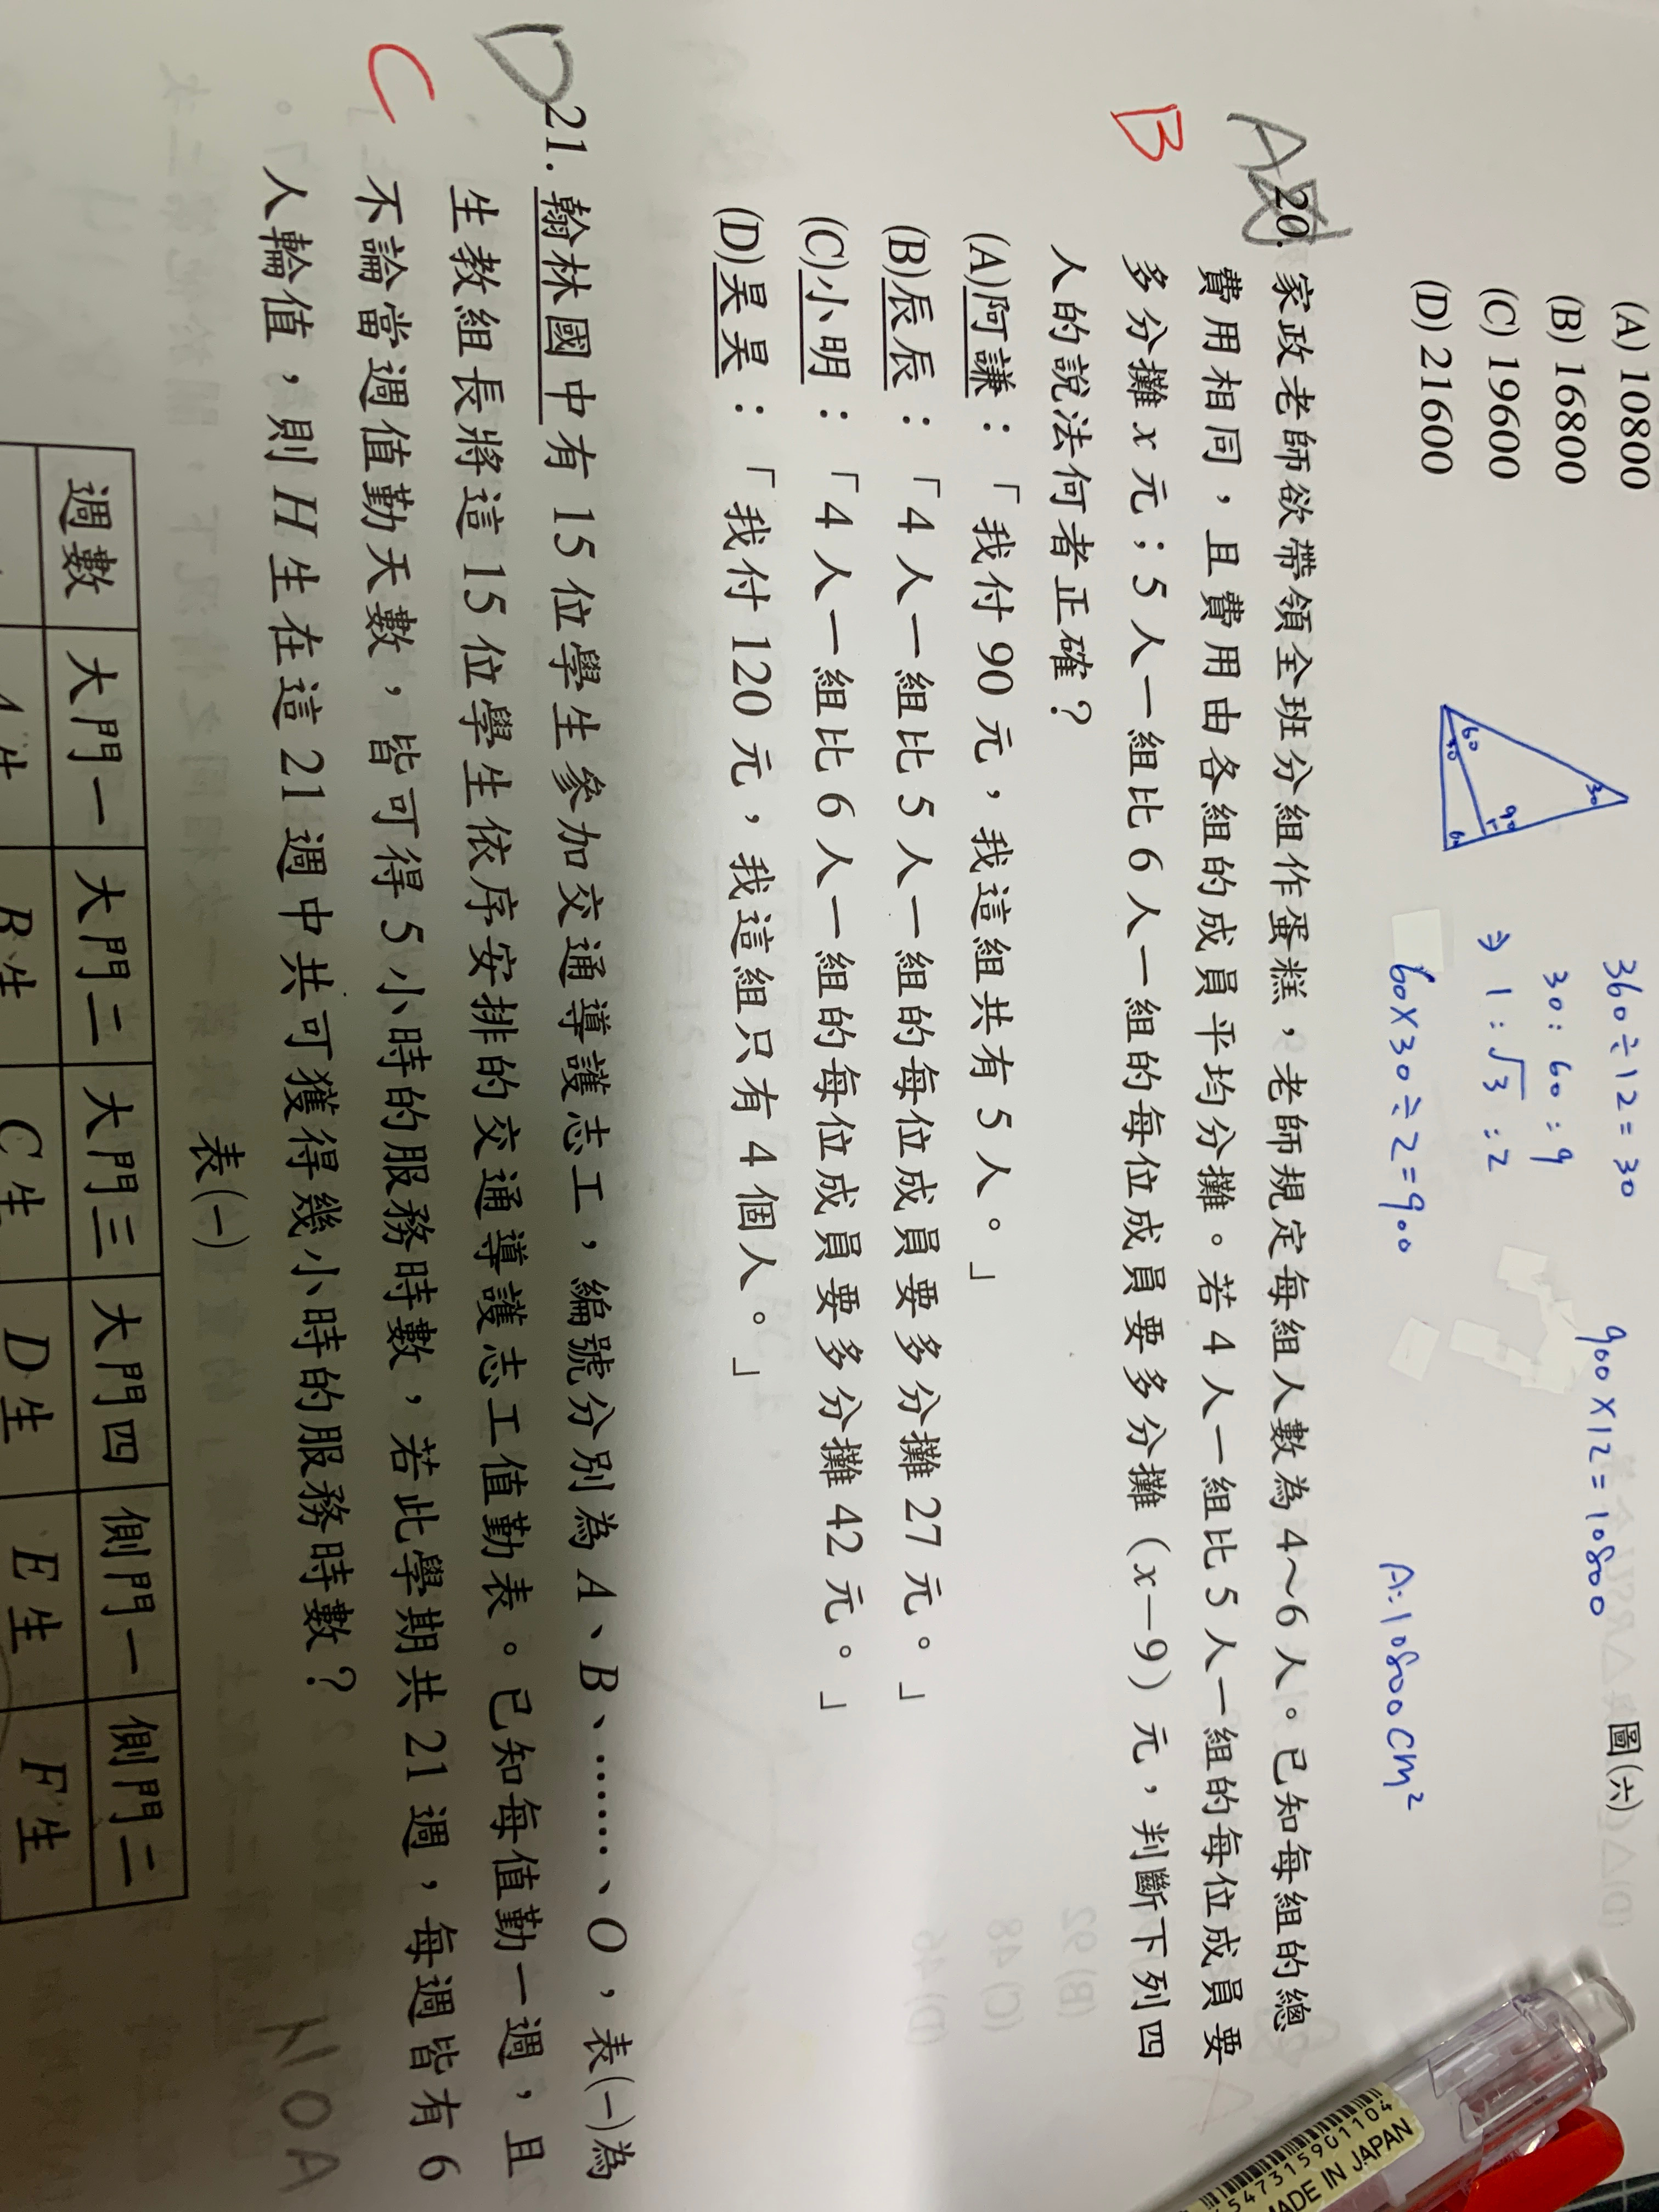 (A) 10800
(B) 16800
(C) 19600
(D) 21600
60
30
30
90
360÷12=30
30:60:9
⇒ 1:√3:2
60×30÷2=900
900×12=10800
A:10800cm²
圖(六)
A
B
20. 家政老師欲帶領全班分組作蛋糕，老師規定每組人數為 4～6 人。已知每組的總
費用相同，且費用由各組的成員平均分攤。若 4 人一組比 5 人一組的每位成員要
多分攤 x 元；5 人一組比 6 人一組的每位成員要多分攤（x－9）元，判斷下列四
人的說法何者正確？
(A)阿謙：「我付 90 元，我這組共有 5 人。」
(B)辰辰：「4 人一組比 5 人一組的每位成員要多分攤 27 元。」
(C)小明：「4 人一組比 6 人一組的每位成員要多分攤 42 元。」
(D)昊昊：「我付 120 元，我這組只有 4 個人。」
D
C
21. 翰林國中有 15 位學生參加交通導護志工，編號分別為 A、B、……、O，表(一)為
生教組長將這 15 位學生依序安排的交通導護志工值勤表。已知每值勤一週，且
不論當週值勤天數，皆可得 5 小時的服務時數，若此學期共 21 週，每週皆有 6
人輪值，則 H 生在這 21 週中共可獲得幾小時的服務時數？
表(一)
週數 大門一 大門二 大門三 大門四 側門一 側門二
A 生 B 生 C 生 D 生 E 生 F 生
547315901104
MADE IN JAPAN